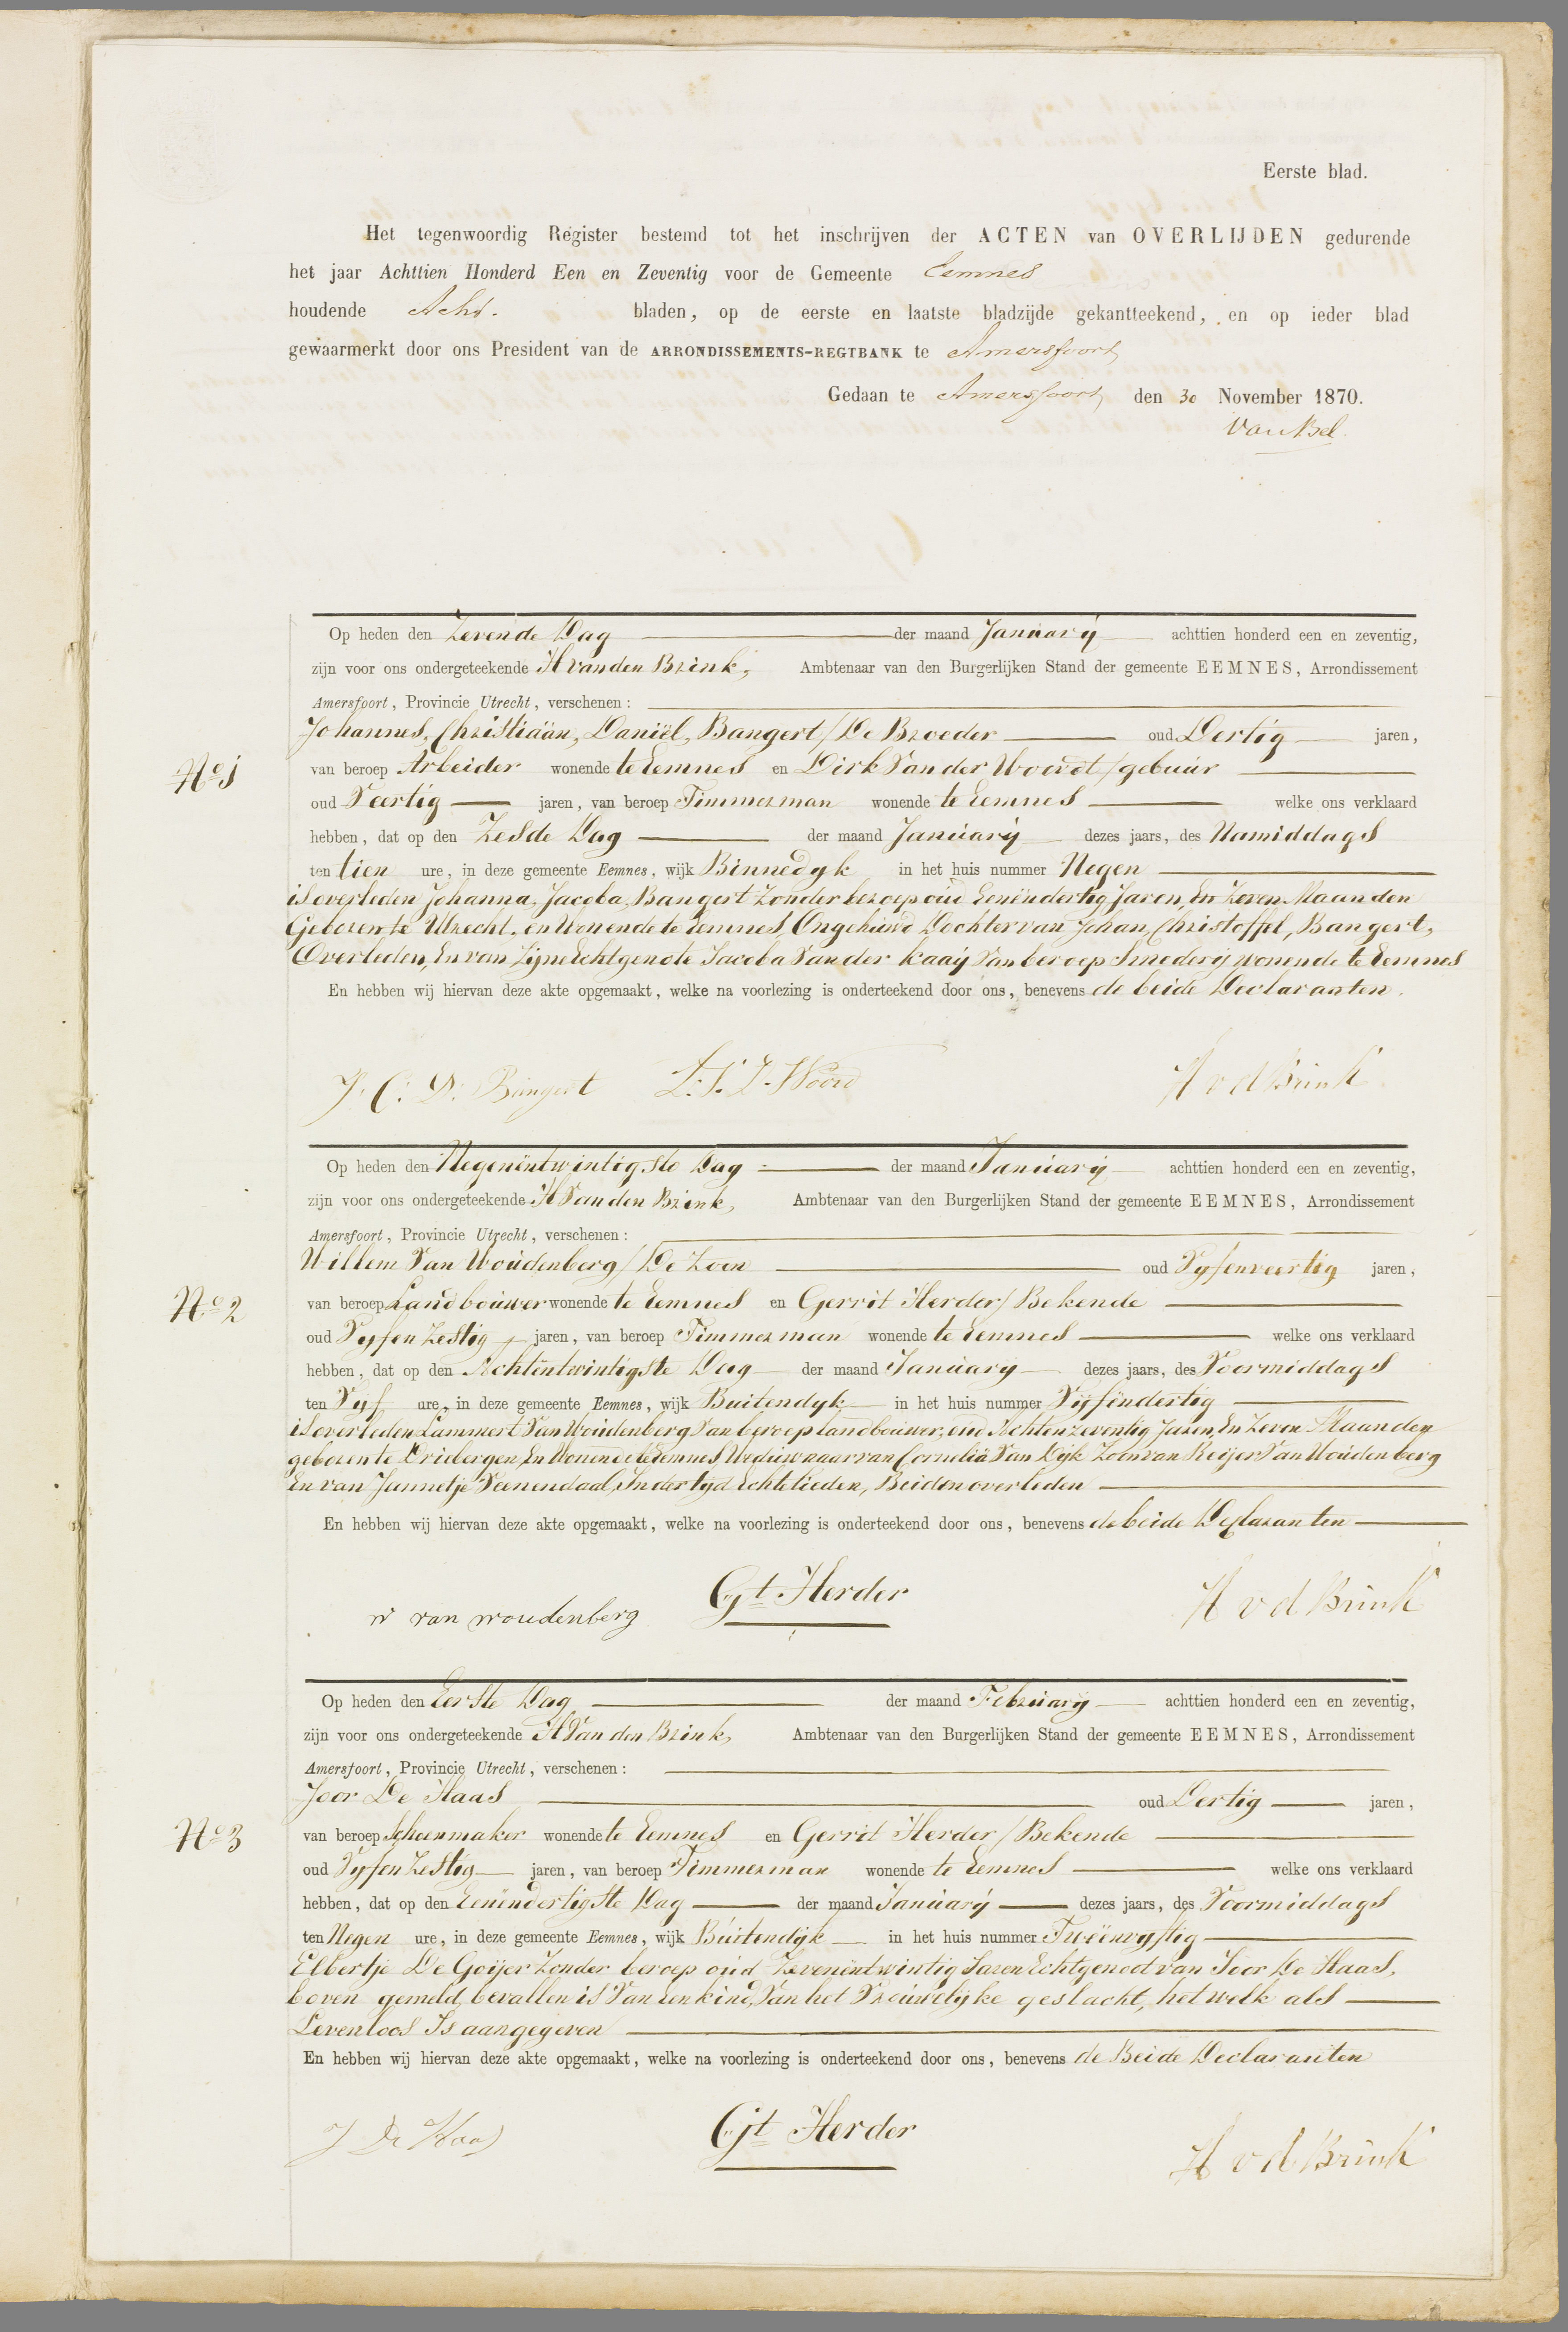 Eerste blad.
Het tegenwoordig Register bestemd tot het inschrijven der ACTEN van OVERLIJDEN gedurende
het jaar Achttien Honderd Een en Zeventig voor de Gemeente Eemnes
houdende Acht. bladen, op de eerste en laatste bladzijde gekantteekend, en op ieder blad
gewaarmerkt door ons President van de ARRONDISSEMENTS-REGTBANK te Amersfoort
Gedaan te Amersfoort, den 30 November 1870.
Van
Op heden den Zevende Dag der maand Januarij achttien honderd een en zeventig,
zijn voor ons ondergeteekende H van den Brink, Ambtenaar van den Burgerlijken Stand der gemeente EEMNES, Arrondissement
Amersfoort, Provincie Utrecht, verschenen:
Johannes, Christiaän, Daniël, Bangert / De Broeder oud Dertig jaren,
No 1
van beroep Arbeider wonende te Eemnes en Dirk Van der Woordt / gebuur
oud Veertig jaren, van beroep Timmerman wonende te Eemnes welke ons verklaard
hebben, dat op den Zesde Dag der maand Januarij dezes jaars, des Namiddags
ten tien ure, in deze gemeente Eemnes, wijk Binnedyk in het huis nummer Negen
is overleden Johanna, Jacoba, Bangert Zonder beroep oud Eenëndertig Jaren, En Zeven Maanden
Geboren te Utrecht, en Wonende te Eemnes, Ongehuwd Dochter van Johan, Christoffel, Bangert,
Overleden, En van Zijne Echtgenote Jacoba Van der Kaaij Van beroep Smederij wonende te Eemnes
En hebben wij hiervan deze akte opgemaakt, welke na voorlezing is onderteekend door ons, benevens de beide Declaranten.
J. C. D. Bangert Woord H v d Brink
Op heden den Negenëntwintigste Dag der maand Januarij achttien honderd een en zeventig,
zijn voor ons ondergeteekende H Van den Brink, Ambtenaar van den Burgerlijken Stand der gemeente EEMNES, Arrondissement
Amersfoort, Provincie Utrecht, verschenen:
Willem Van Woudenberg / De Zoon oud Vyfenveertig jaren,
No 2
van beroep Landbouwer wonende te Eemnes en Gerrit Herder / Bekende
oud Vyfen Zestig jaren, van beroep Timmerman wonende te Eemnes welke ons verklaard
hebben, dat op den Achtëntwintigste Dag der maand Januarij dezes jaars, des Voormiddags
ten Vyf ure, in deze gemeente Eemnes, wijk Buitendyk in het huis nummer Vijfëndertig
is overleden Lammert Van Woudenberg Van beroep landbouwer, oud Achtenzeventig Jaren, En Zeven Maanden
geboren te Driebergen, En Wonende te Eemnes, Weduwnaar van Cornelia Van Dijk Zoon van Reijer Van Woudenberg
En van Jannetje Veenendaal, In der tyd Echtelieden, Beiden overleden
En hebben wij hiervan deze akte opgemaakt, welke na voorlezing is onderteekend door ons, benevens de beide Declaranten
w van woudenberg Gt Herder H v d Brink
Op heden den Eerste Dag der maand Februarij achttien honderd een en zeventig,
zijn voor ons ondergeteekende H Van den Brink, Ambtenaar van den Burgerlijken Stand der gemeente EEMNES, Arrondissement
Amersfoort, Provincie Utrecht, verschenen:
Joor De Haas oud Dertig jaren,
No 3
van beroep Schoenmaker wonende te Eemnes en Gerrit Herder / Bekende
oud Vyfen Zestig jaren, van beroep Timmerman wonende te Eemnes welke ons verklaard
hebben, dat op den Eenëndertigste Dag der maand Januarij dezes jaars, des Voormiddags
ten Negen ure, in deze gemeente Eemnes, wijk Buitendijk in het huis nummer Tweeënvyftig
Elbertje De Goijer Zonder beroep oud Zevenëntwintig Jaren Echtgenoot van Joor De Haas,
boven gemeld, bevallen is Van een kind, Van het Vrouwelijke geslacht, het welk als
Levenloos Is aangegeven
En hebben wij hiervan deze akte opgemaakt, welke na voorlezing is onderteekend door ons, benevens de Beide Declaranten
J De Haas Gt Herder H v d Brink